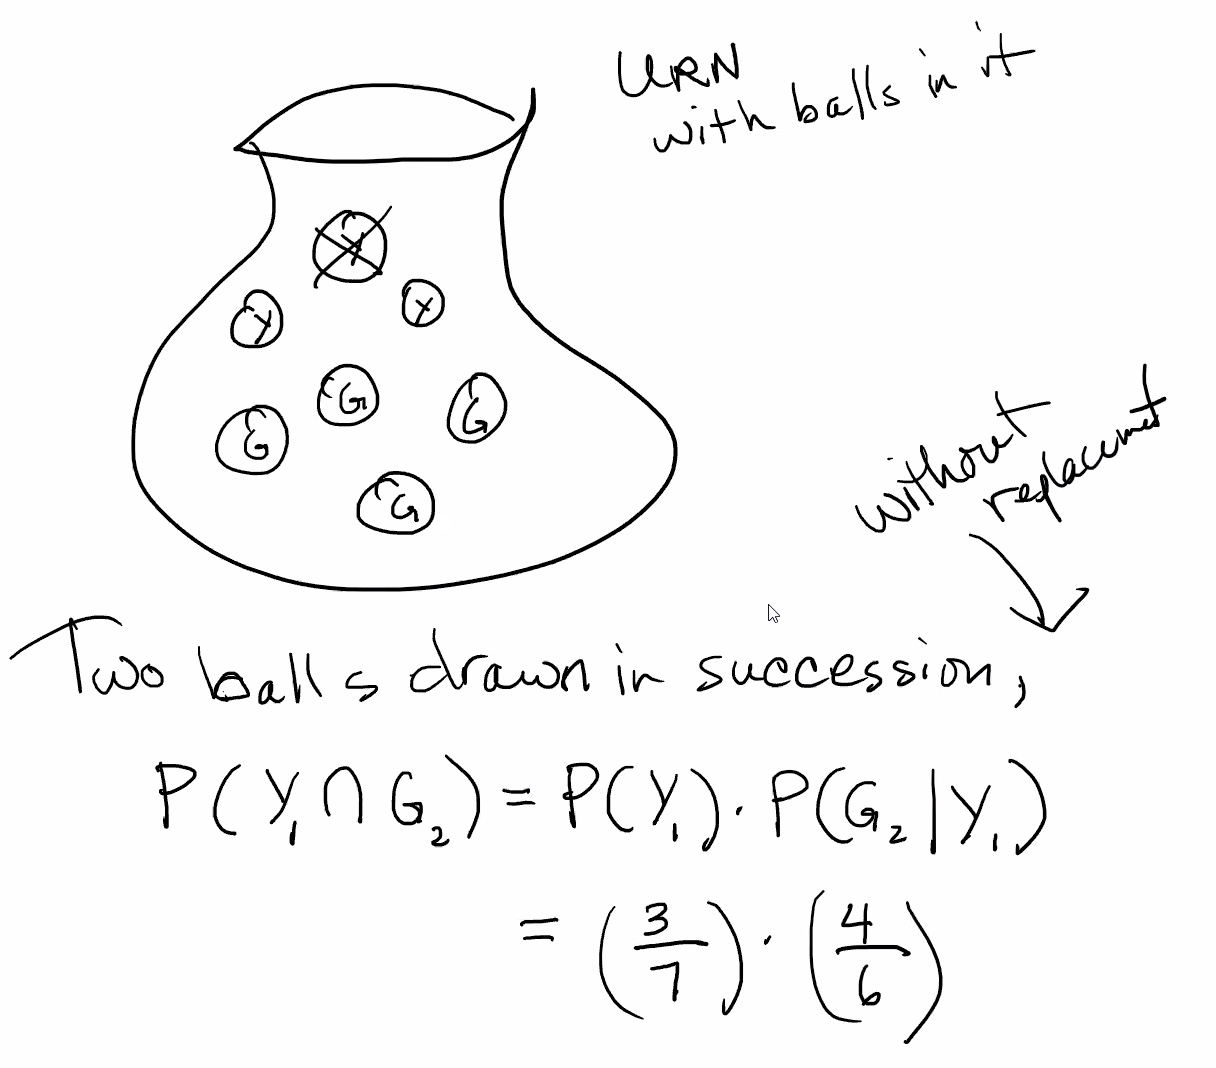 URN
with balls in it
Y
Y
Y
G
G
G
G
without
replacement
Two balls drawn in succession,
P(Y₁ ∩ G₂) = P(Y₁) · P(G₂ | Y₁)
= (3/7) · (4/6)